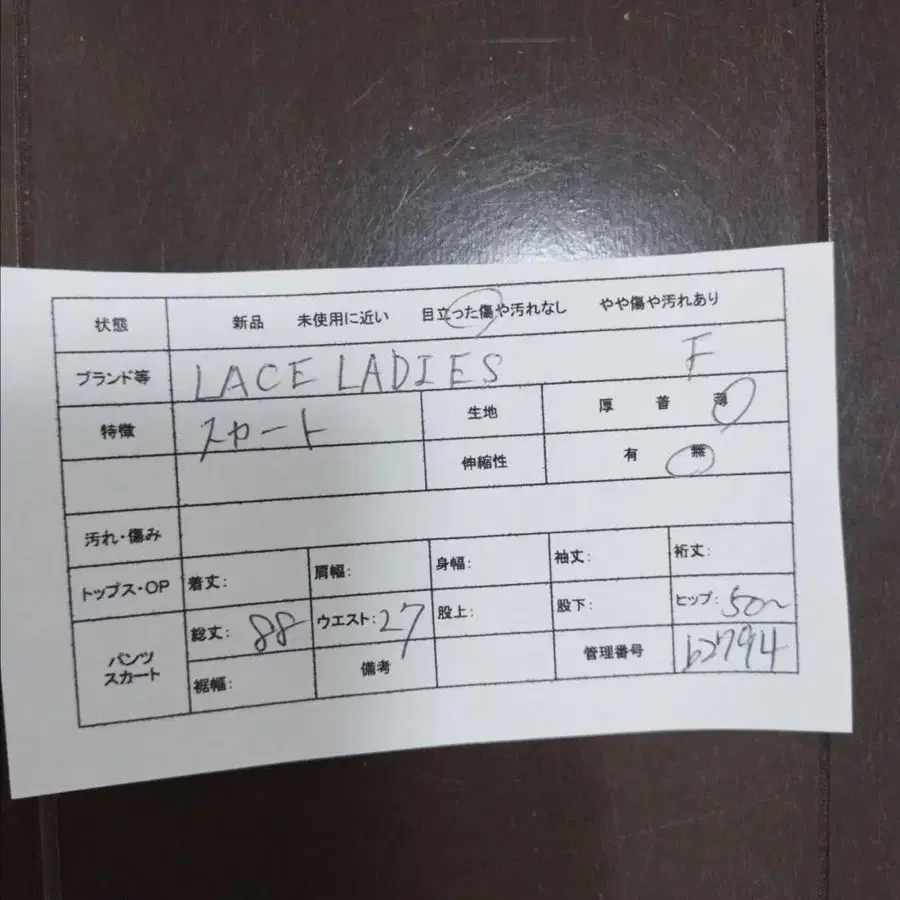 状態 新品 未使用に近い 目立った傷や汚れなし やや傷や汚れあり
ブランド等 LACE LADIES F
特徴 スカート 生地 厚 普 薄
伸縮性 有 無
汚れ・傷み
トップス・OP 着丈: 肩幅: 身幅: 袖丈: 裄丈:
パンツ スカート 総丈: 88 ウエスト: 27 股上: 股下: ヒップ: 50~
裾幅: 備考 管理番号 b2794